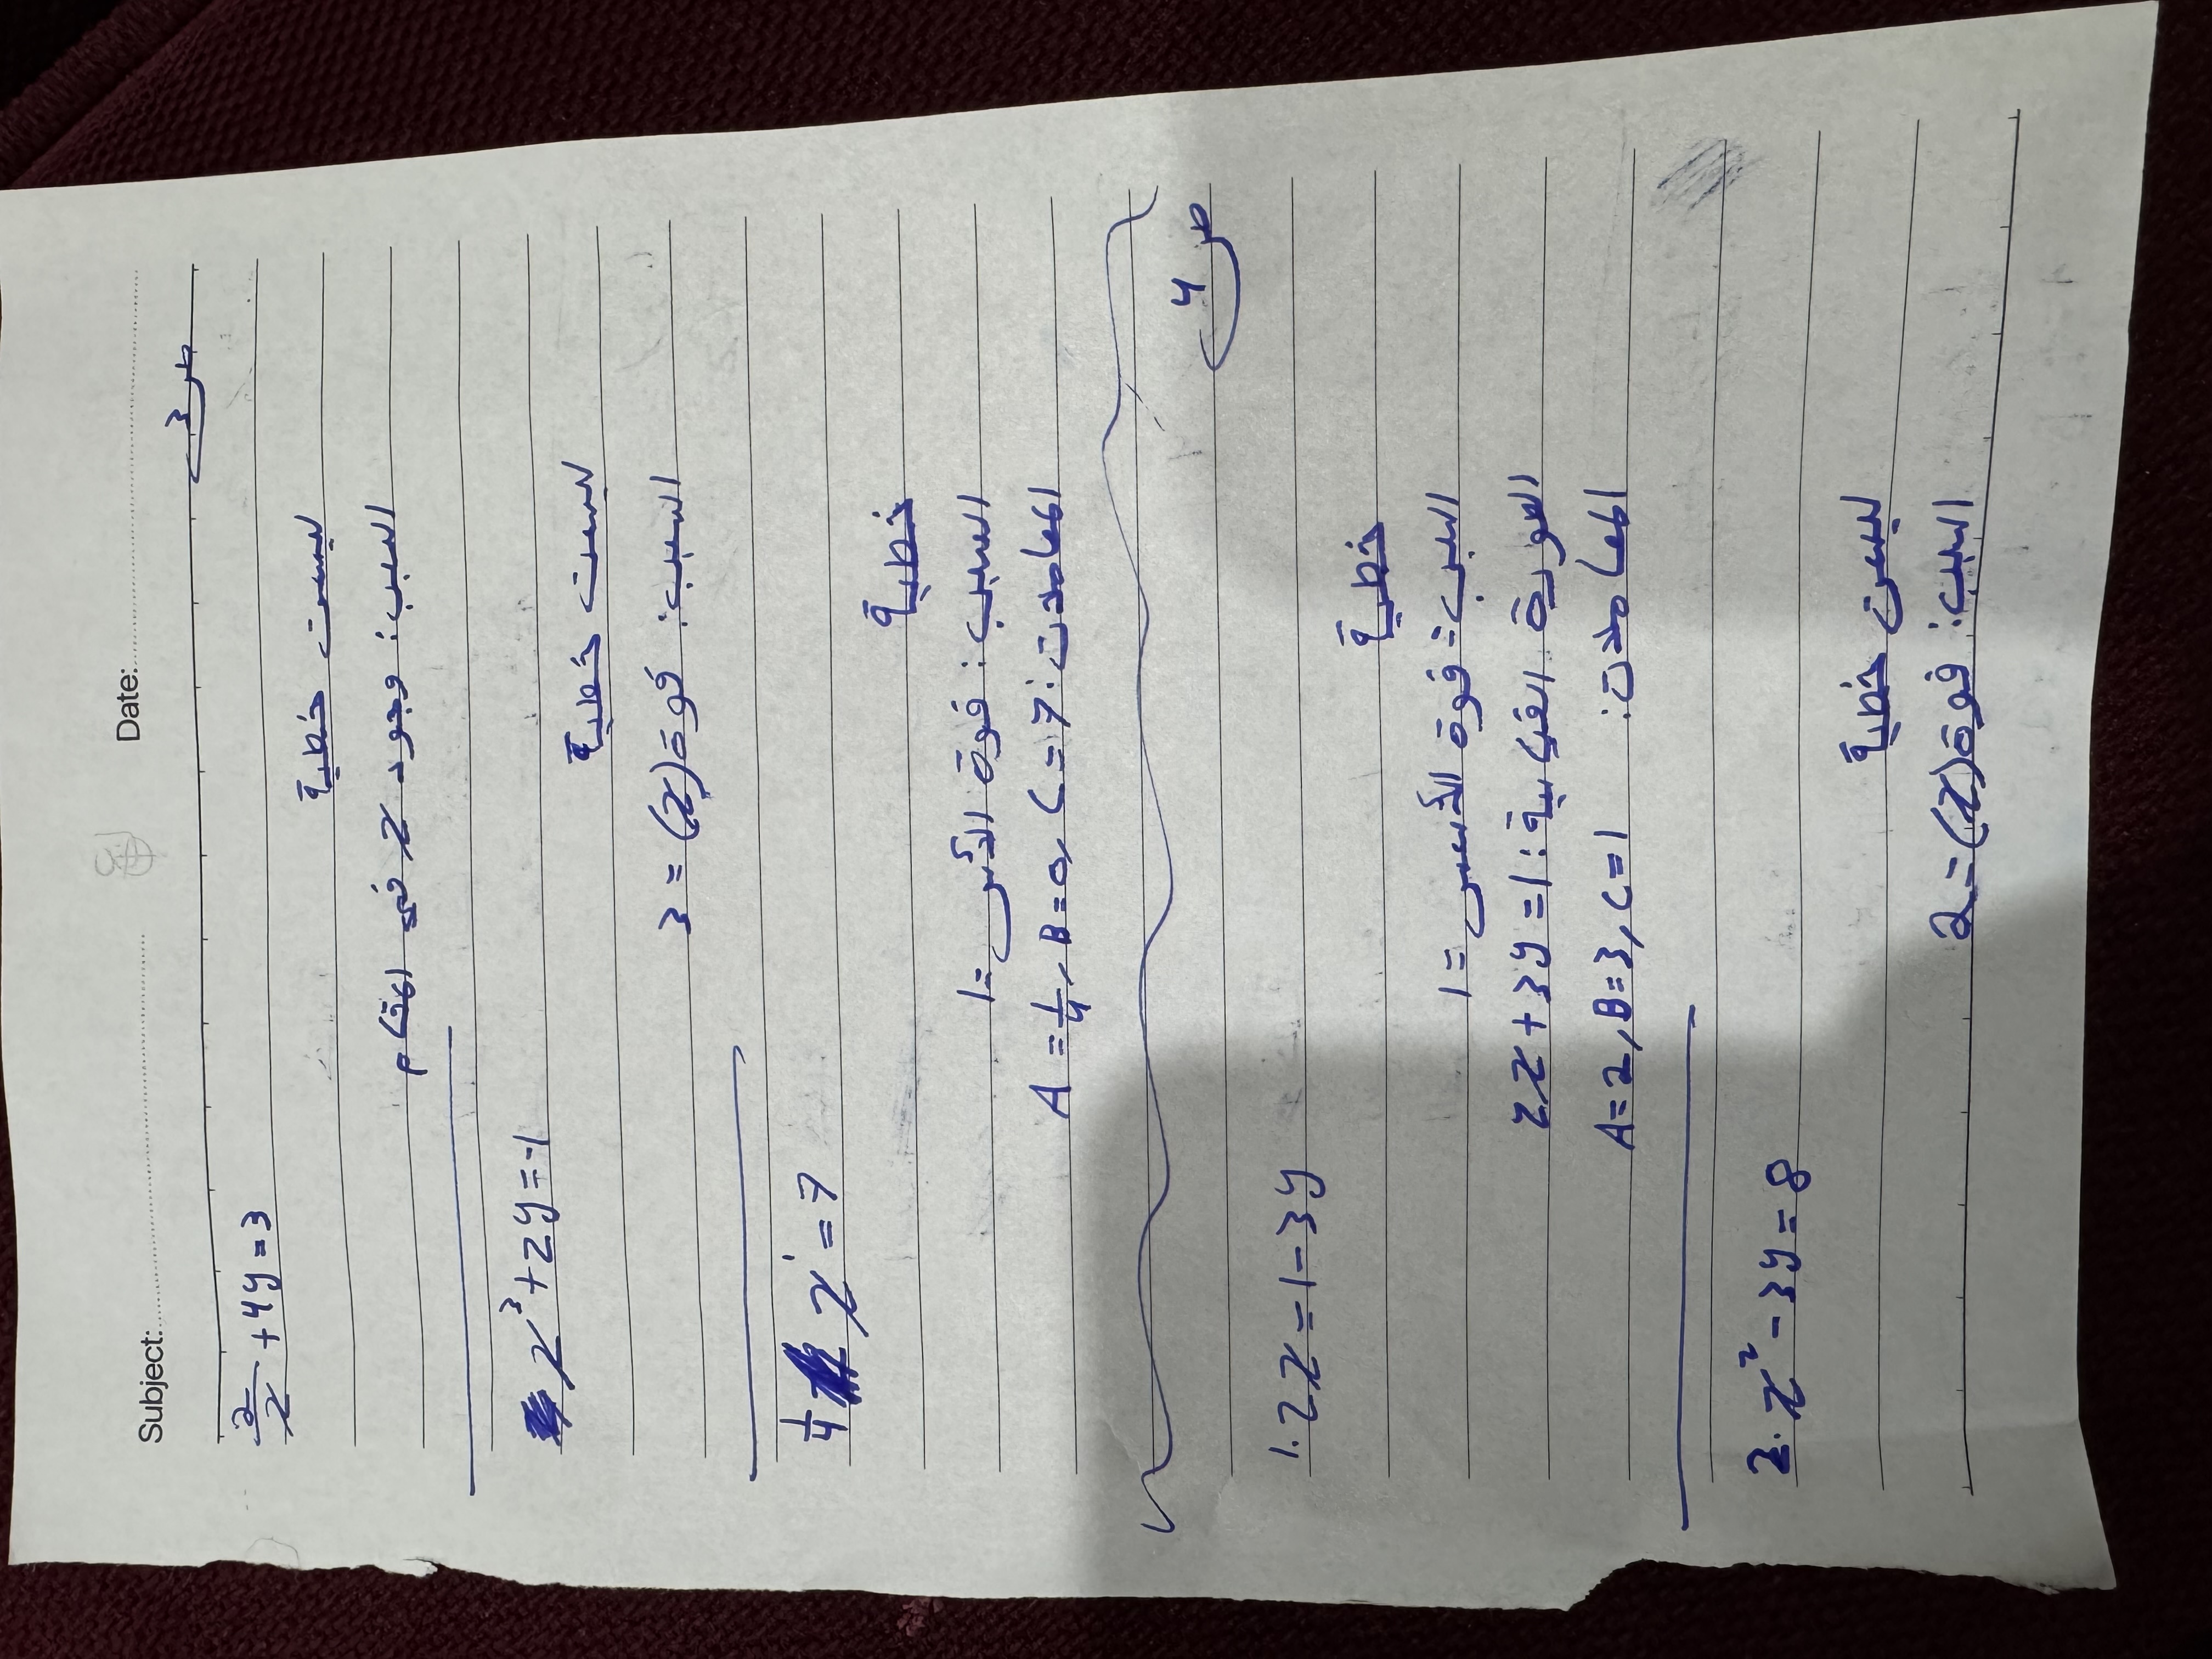 Subject: Date:
ص 3
2/x + 4y = 3
ليست خطية
السبب: وجود x في المقام
x³ + 2y = -1
ليست خطية
السبب: قوة (x) = 3
1/4 x¹ = 7
خطية
السبب: قوة الأس = 1
المعاملات: A = 1/4, B = 0, C = 7
ص 4
1. 2x = 1 - 3y
خطية
السبب: قوة الأس = 1
الصورة القياسية: 2x + 3y = 1
المعاملات: A = 2, B = 3, C = 1
2. x² - 3y = 8
ليست خطية
السبب: قوة (x) = 2